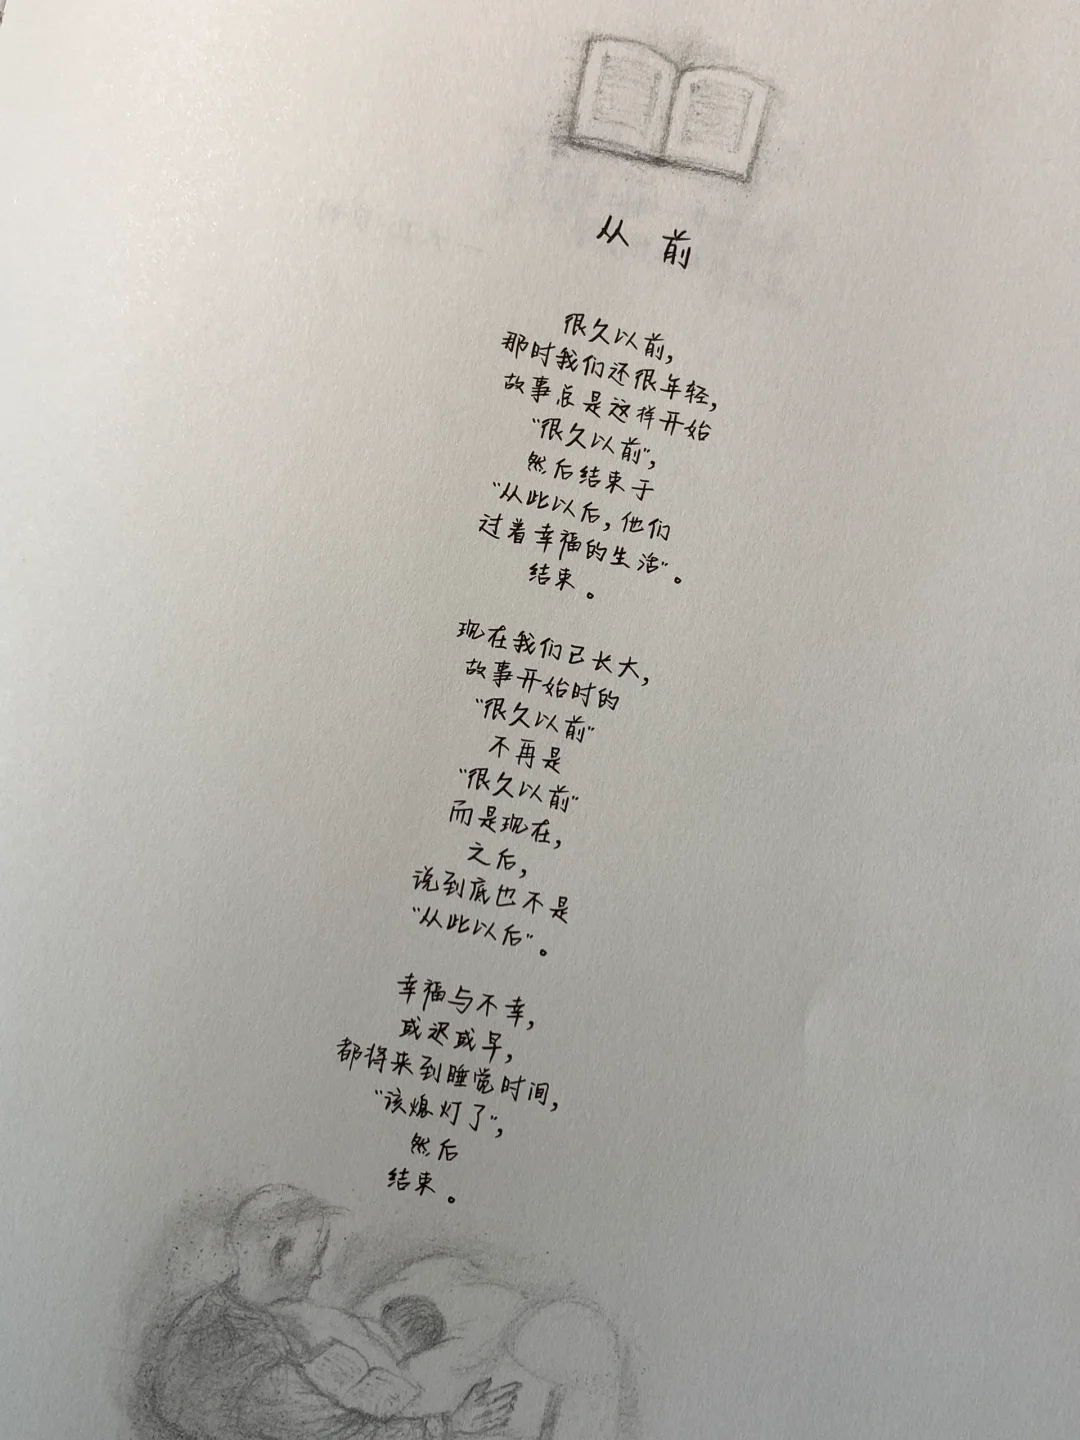 从前
很久以前,
那时我们还很年轻,
故事总是这样开始
“很久以前”,
然后结束于
“从此以后,他们
过着幸福的生活”。
结束。
现在我们已长大,
故事开始时的
“很久以前”
不再是
“很久以前”
而是现在,
之后,
说到底也不是
“从此以后”。
幸福与不幸,
或迟或早,
都将来到睡觉时间,
“该熄灯了”,
然后
结束。